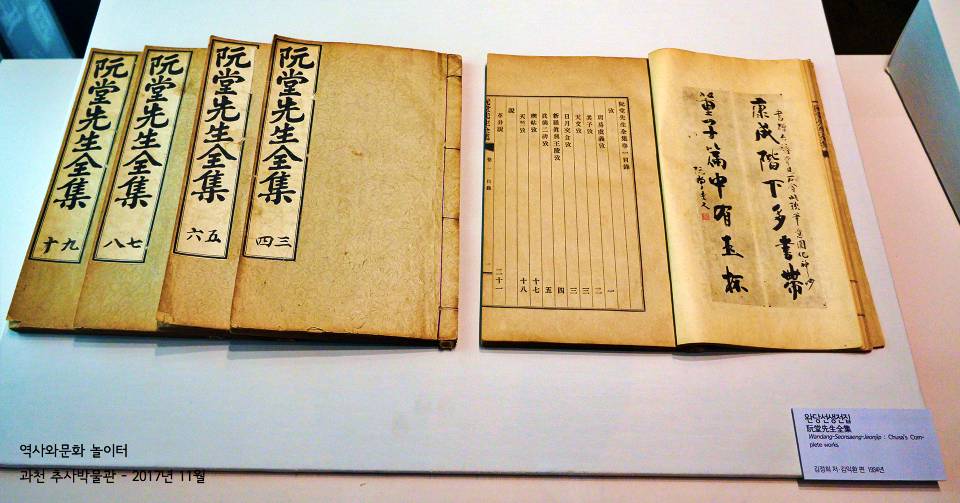 阮堂先生全集
九十
阮堂先生全集
七八
阮堂先生全集
五六
阮堂先生全集
三四
阮堂先生全集卷一目錄
攷
周易虞義攷 一
箕子攷 二
天文攷 三
日月交食攷 三
新羅眞興王陵攷 四
眞興二碑攷 五
禊帖攷 十七
天竺攷 十八
說
革卦說 二十一
康成階下多書帶
董子篇中有玉杯
완당선생전집
阮堂先生全集
Wandang-Seonsaeng-Jeonjip : Chusa's Com-
plete works
김정희 저·김익환 편 1934년
역사와문화 놀이터
과천 추사박물관 - 2017년 11월